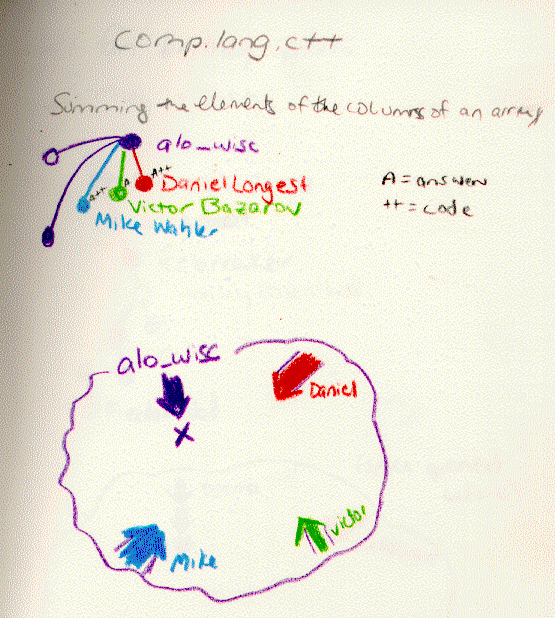 comp.lang.c++
Summing the elements of the columns of an array
alo_wisc
A++ Daniel Longest
A Victor Bazarov
A++ Mike Wahler
A = answer
++ = code
alo_wisc
Daniel
X
Victor
Mike